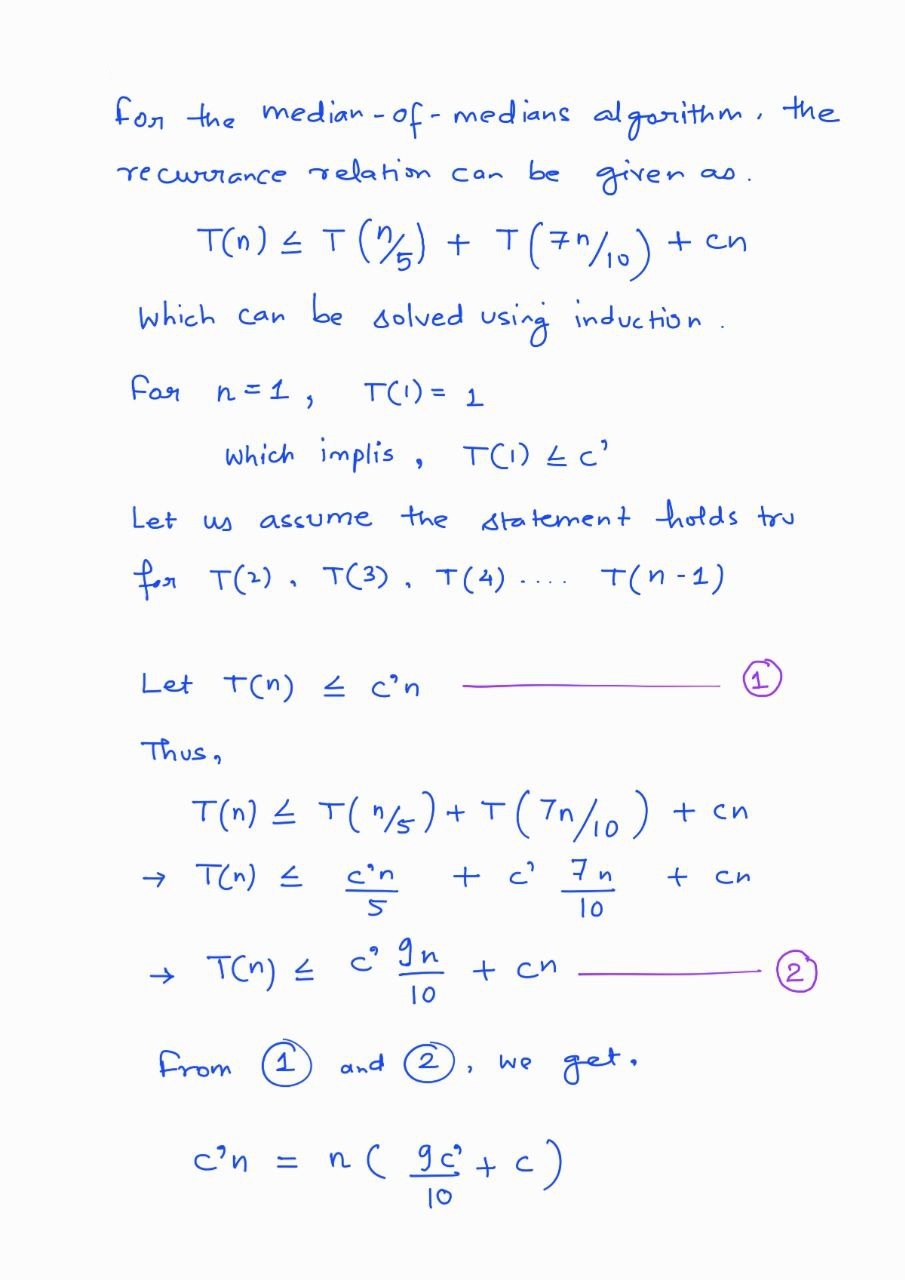 For the median-of-medians algorithm, the
recurrance relation can be given as.
T(n) ≤ T(n/5) + T(7n/10) + cn
Which can be solved using induction.
For n=1, T(1)= 1
Which implis, T(1) ≤ c'
Let us assume the statement holds tru
for T(2), T(3), T(4) .... T(n-1)
Let T(n) ≤ c'n ——— ①
Thus,
T(n) ≤ T(n/5) + T(7n/10) + cn
→ T(n) ≤ c'n/5 + c' 7n/10 + cn
→ T(n) ≤ c' 9n/10 + cn ——— ②
From ① and ②, we get.
c'n = n( 9c'/10 + c)